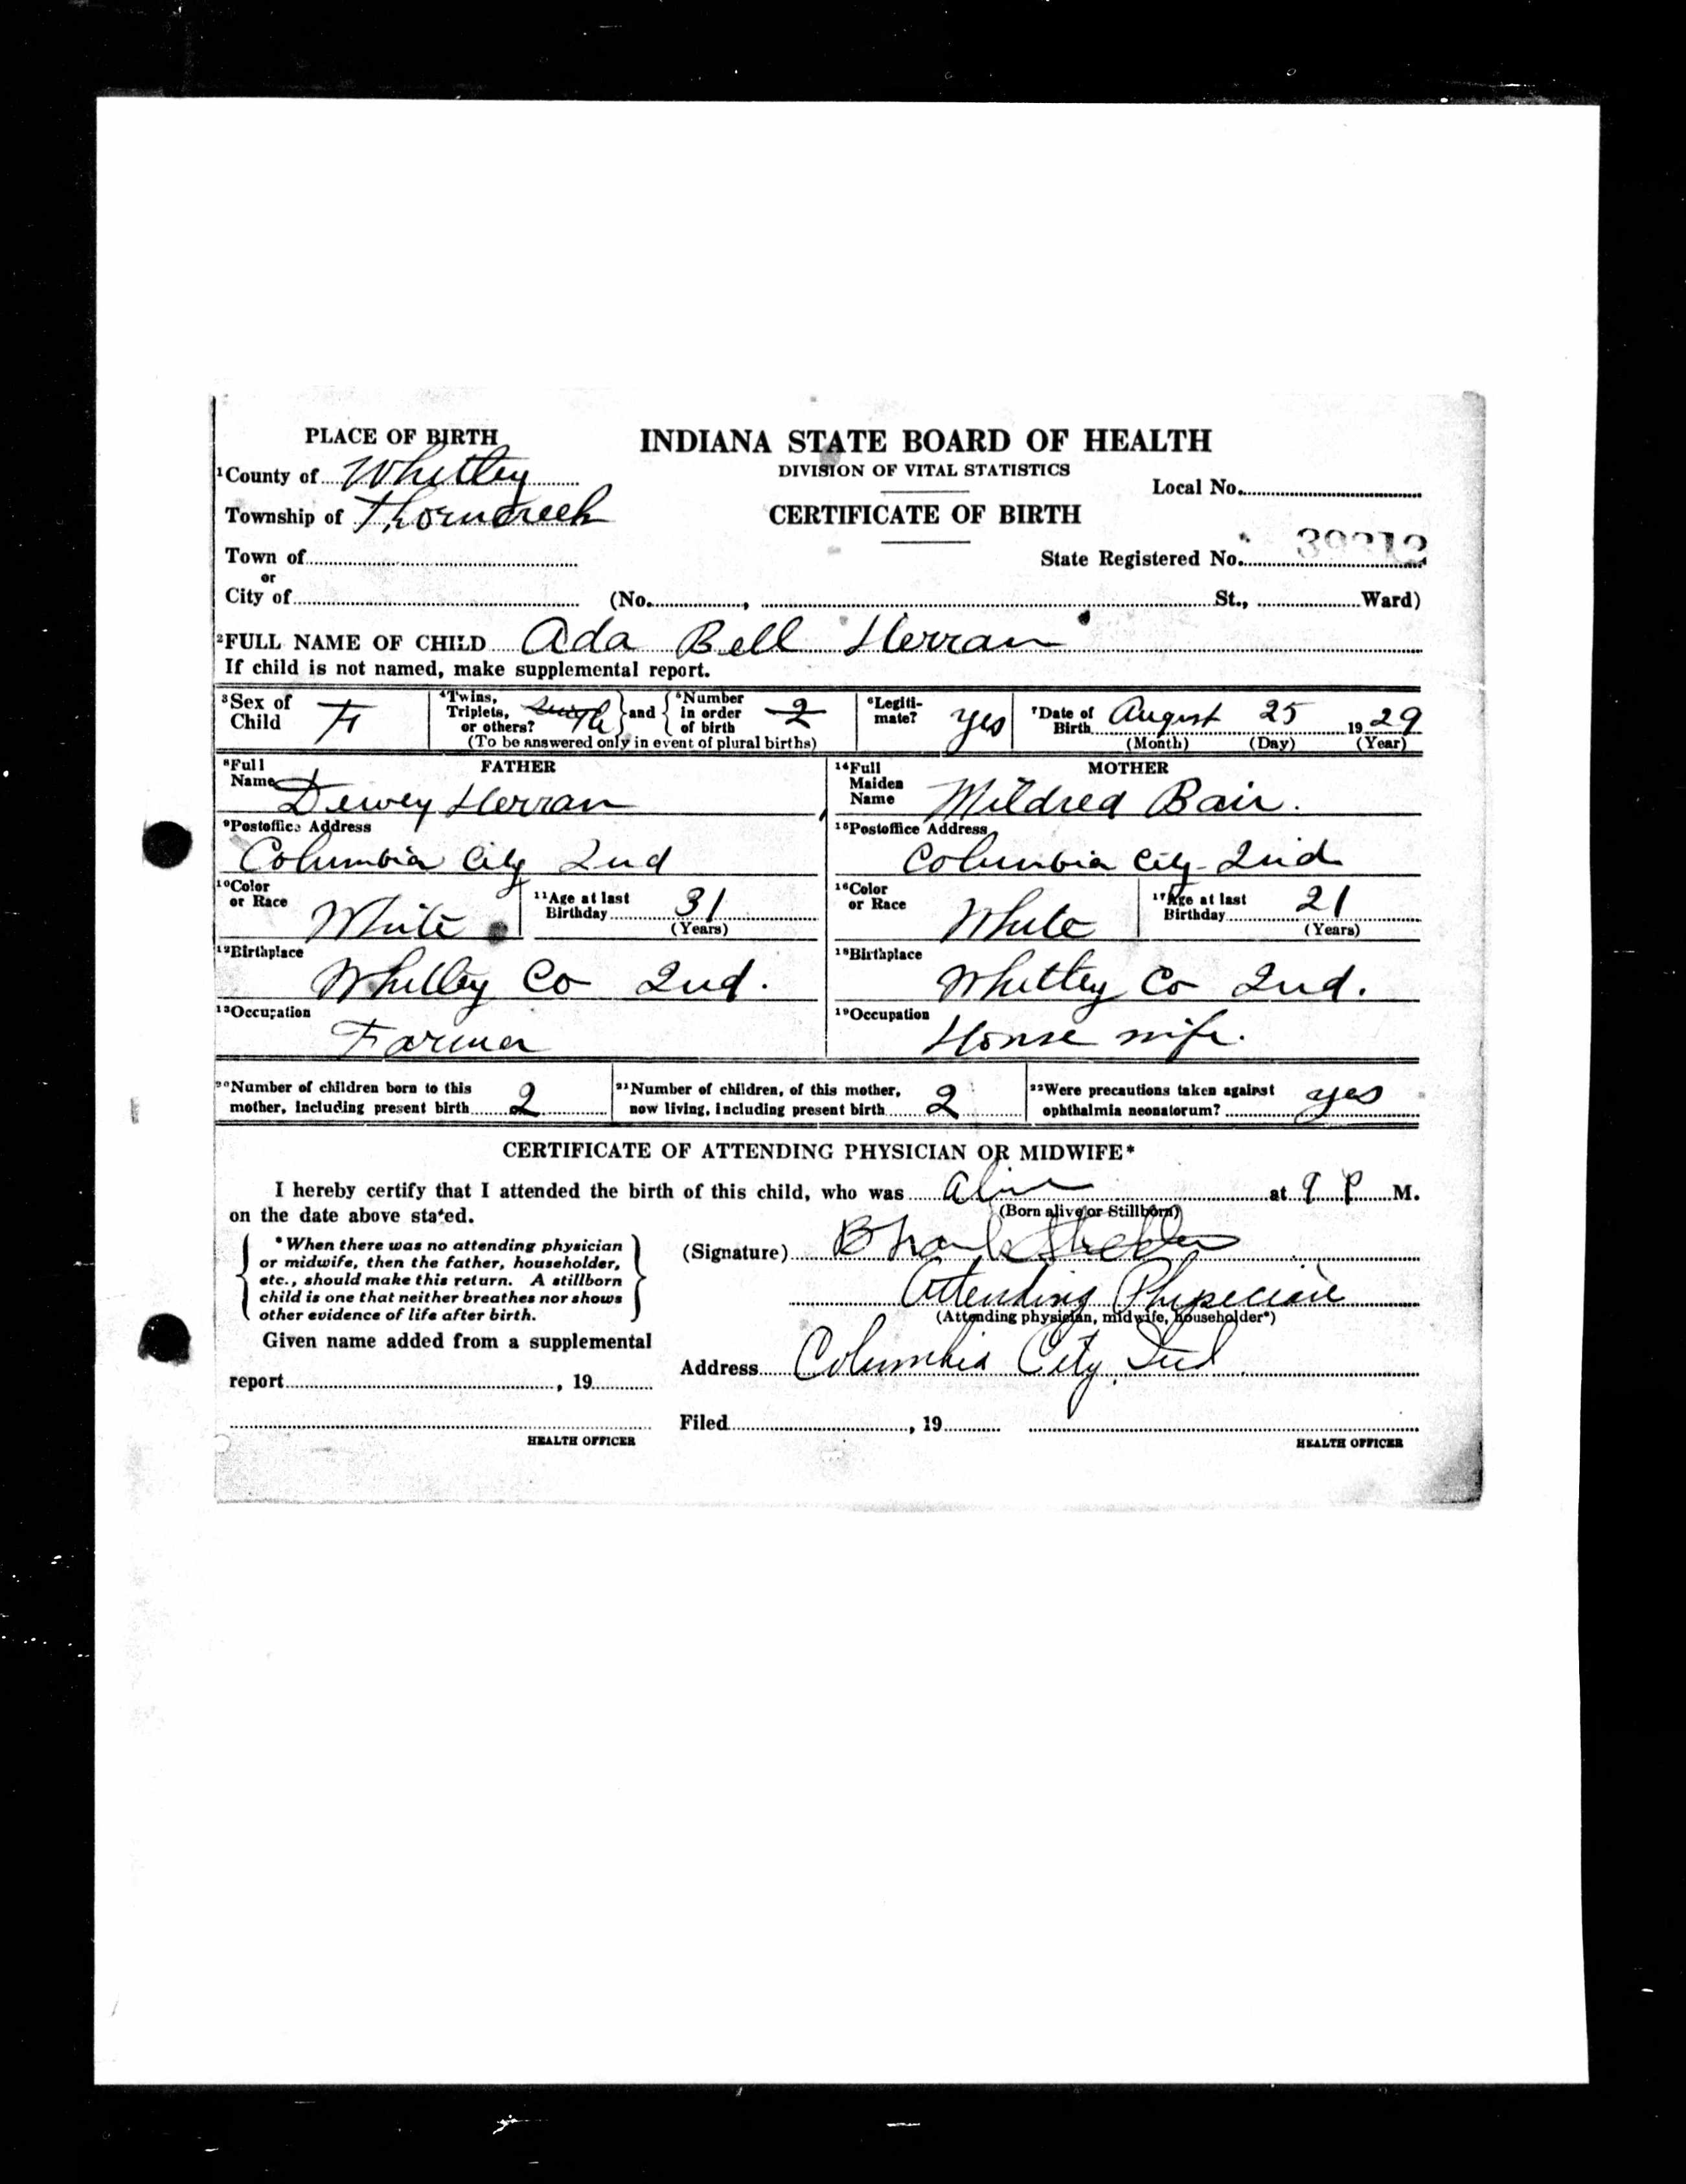 PLACE OF BIRTH
INDIANA STATE BOARD OF HEALTH
DIVISION OF VITAL STATISTICS
1 County of Whitley
Local No.
Township of Thorncreek
CERTIFICATE OF BIRTH
Town of
State Registered No.
or
City of (No. , St., Ward)
2 FULL NAME OF CHILD Ada Bell Herran
If child is not named, make supplemental report.
3 Sex of Child F
4 Twins, Triplets, or others? } and { 5 Number in order of birth 2
(To be answered only in event of plural births)
6 Legiti-mate? yes
7 Date of Birth August 25 1929
(Month) (Day) (Year)
FATHER
8 Full Name Dewey Herran
MOTHER
14 Full Maiden Name Mildred Bair.
9 Postoffice Address
Columbia City Ind
15 Postoffice Address
Columbia City Ind
10 Color or Race White
11 Age at last Birthday 31
(Years)
16 Color or Race White
17 Age at last Birthday 21
(Years)
12 Birthplace
Whitley Co Ind.
18 Birthplace
Whitley Co Ind.
13 Occupation
Farmer
19 Occupation
House wife.
20 Number of children born to this
mother, including present birth 2
21 Number of children, of this mother,
now living, including present birth 2
22 Were precautions taken against
ophthalmia neonatorum? yes
CERTIFICATE OF ATTENDING PHYSICIAN OR MIDWIFE*
I hereby certify that I attended the birth of this child, who was Alive at 9 P M.
(Born alive or Stillborn)
on the date above stated.
* When there was no attending physician
or midwife, then the father, householder,
etc., should make this return. A stillborn
child is one that neither breathes nor shows
other evidence of life after birth.
(Signature)
Attending Physician
(Attending physician, midwife, householder*)
Given name added from a supplemental
report , 19
Address Columbia City Ind
HEALTH OFFICER
Filed , 19
HEALTH OFFICER